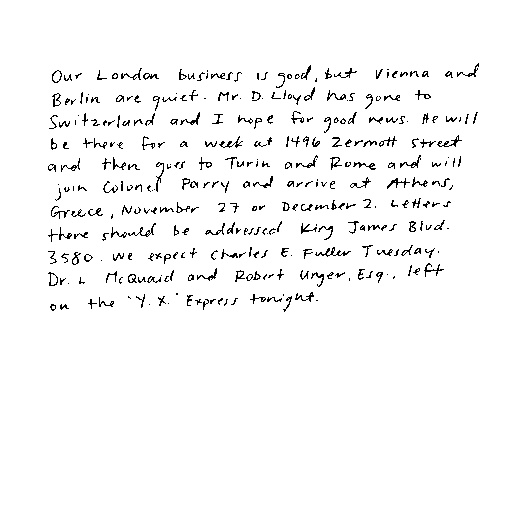 Our London business is good, but Vienna and
Berlin are quiet. Mr. D. Lloyd has gone to
Switzerland and I hope for good news. He will
be there for a week at 1496 Zermott street
and then goes to Turin and Rome and will
join Colonel Parry and arrive at Athens,
Greece, November 27 or December 2. Letters
there should be addressed King James Blvd.
3580. We expect Charles E. Fuller Tuesday.
Dr. L McQuaid and Robert Unger, Esq., left
on the "Y. X." Express tonight.